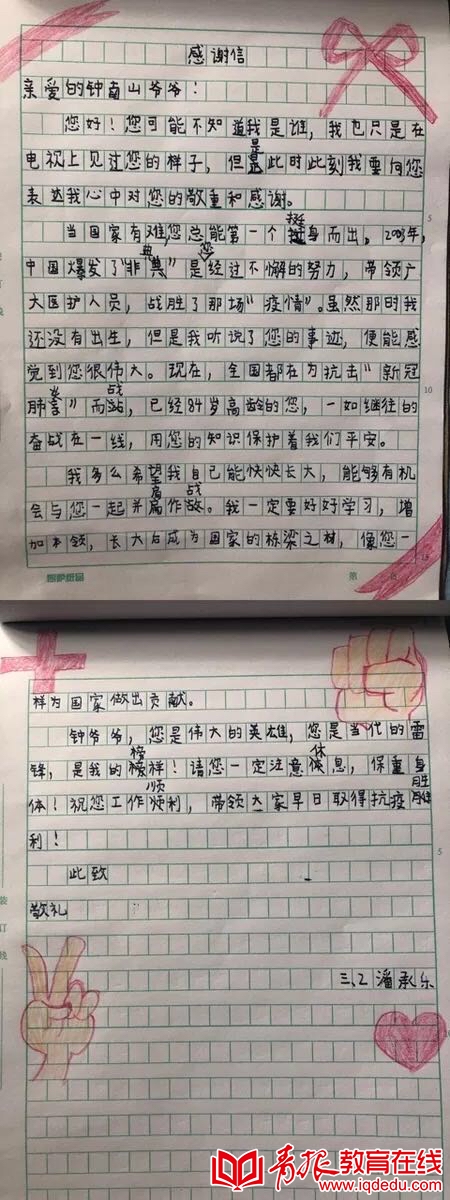 感谢信
亲爱的钟南山爷爷！
您好！您可能不知道我是谁，我也只是在
电视上见过您的样子，但是此时此刻我要向您
表达我心中对您的敬重和感谢。
当国家有难，您总能第一个挺身而出。2003年，
中国爆发了“非典”是您经过不懈的努力，带领广
大医护人员，战胜了那场“疫情”。虽然那时我
还没有出生，但是我听说了您的事迹，便能感
觉到您很伟大。现在，全国都在为抗击“新冠
肺炎”而战，已经84岁高龄的您，一如继往的
奋战在一线，用您的知识保护着我们平安。
我多么希望我自己能快快长大，能够有机
会与您一起并肩作战。我一定要好好学习，增
加本领，长大后成为国家的栋梁之材，像您一
样为国家做出贡献。
钟爷爷，您是伟大的英雄，您是当代的雷
锋，是我的榜样！请您一定注意休息，保重身
体！祝您工作顺利，带领大家早日取得抗疫胜
利！
此致
敬礼
三.2 潘承乐
青报教育在线
www.iqdedu.com